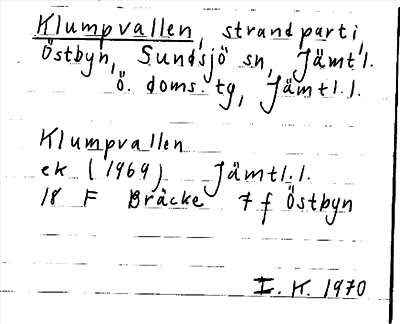 Klumpvallen, strandparti,
Östbyn, Sundsjö sn, Jämtl.
Ö. doms. tg, Jämtl. l.
Klumpvallen
ek (1969) Jämtl. l.
18 F Bräcke 7 f Östbyn
I. K. 1970